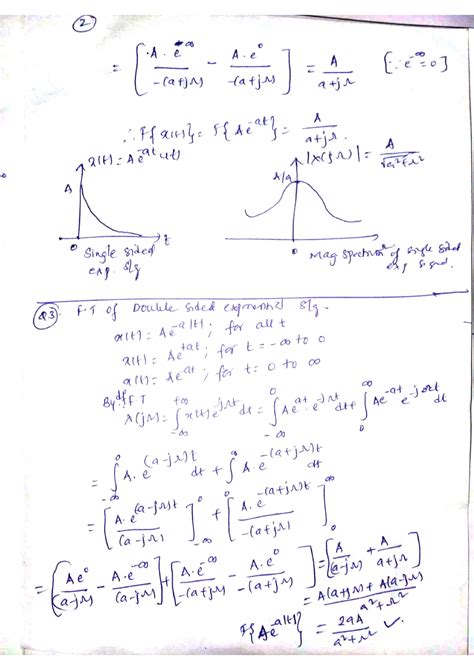 2
= [ A.e^-∞ / -(a+jΩ) - A.e^0 / -(a+jΩ) ] = A / a+jΩ [∵ e^-∞ = 0]
∴ F{x(t)} = F{Ae^-at} = A / a+jΩ.
x(t) = Ae^-at u(t)
|X(jΩ)| = A / √a²+Ω²
A
A/a
0
t
0
Single sided
exp. S/g
Mag Spectrum of single sided
exp signal.
Q3. F.T of Double sided exponential S/g.
x(t) = Ae^-a|t| ; for all t
x(t) = Ae^+at ; for t = -∞ to 0
x(t) = Ae^-at ; for t = 0 to ∞
By df F.T
X(jΩ) = ∫_-∞^+∞ x(t) e^-jΩt dt = ∫_-∞^0 Ae^at . e^-jΩt dt + ∫_0^∞ Ae^-at e^-jΩt dt
= ∫_-∞^0 A.e^(a-jΩ)t dt + ∫_0^∞ A.e^-(a+jΩ)t dt
= [ A.e^(a-jΩ)t / (a-jΩ) ]_-∞^0 + [ A.e^-(a+jΩ)t / -(a+jΩ) ]_0^∞
= [ Ae^0 / (a-jΩ) - A.e^-∞ / (a-jΩ) ] + [ A.e^-∞ / -(a+jΩ) - A.e^0 / -(a+jΩ) ] = [ A / a-jΩ + A / a+jΩ ]
= A(a+jΩ) + A(a-jΩ) / a²+Ω²
F{Ae^-a|t|} = 2aA / a²+Ω²